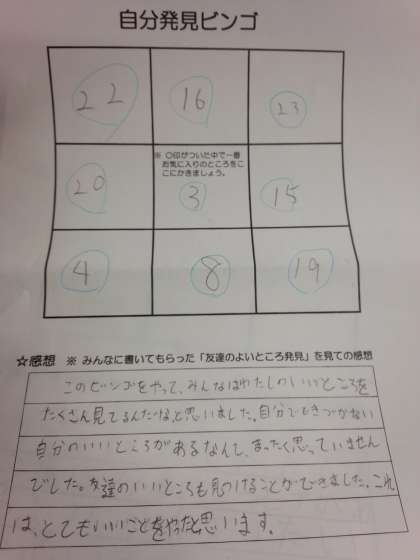 自分発見ビンゴ
22 16 23
※ ○印がついた中で一番
お気に入りのところをこ
こにかきましょう。
20 3 15
4 8 19
☆感想 ※ みんなに書いてもらった「友達のよいところ発見」を見ての感想
このビンゴをやって、みんなはわたしのいいところを
たくさん見てるんだなと思いました。自分でもきづかない
自分のいいところがあるなんて、まったく思っていません
でした。友達のいいところも見つけることができました。これ
は、とてもいいことをやったと思います。